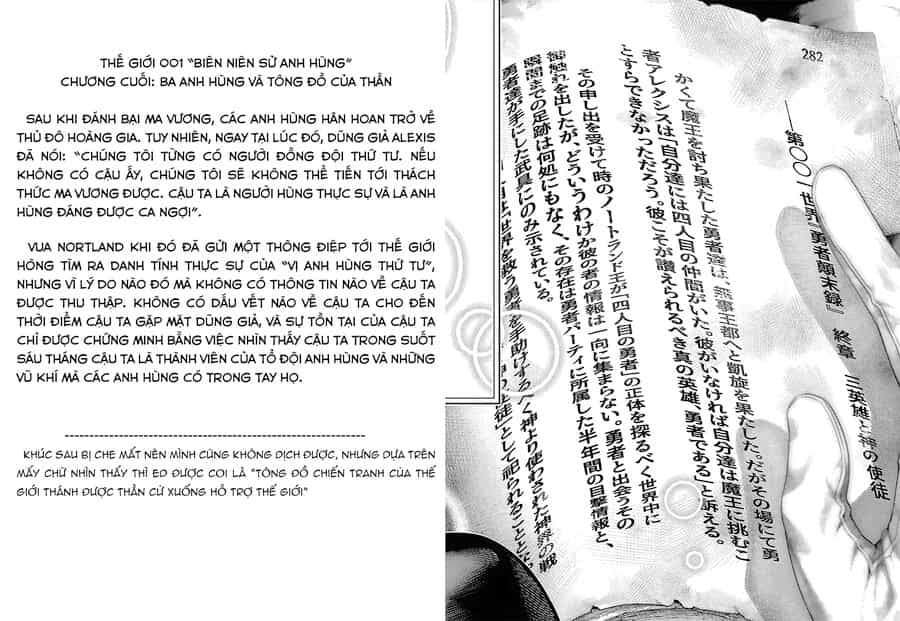 THẾ GIỚI 001 "BIÊN NIÊN SỬ ANH HÙNG"
CHƯƠNG CUỐI: BA ANH HÙNG VÀ TÔNG ĐỒ CỦA THẦN
SAU KHI ĐÁNH BẠI MA VƯƠNG, CÁC ANH HÙNG HÂN HOAN TRỞ VỀ
THỦ ĐÔ HOÀNG GIA. TUY NHIÊN, NGAY TẠI LÚC ĐÓ, DŨNG GIẢ ALEXIS
ĐÃ NÓI: "CHÚNG TÔI TỪNG CÓ NGƯỜI ĐỒNG ĐỘI THỨ TƯ. NẾU
KHÔNG CÓ CẬU ẤY, CHÚNG TÔI SẼ KHÔNG THỂ TIẾN TỚI THÁCH
THỨC MA VƯƠNG ĐƯỢC. CẬU TA LÀ NGƯỜI HÙNG THỰC SỰ VÀ LÀ ANH
HÙNG ĐÁNG ĐƯỢC CA NGỢI".
VUA NORTLAND KHI ĐÓ ĐÃ GỬI MỘT THÔNG ĐIỆP TỚI THẾ GIỚI
HÒNG TÌM RA DANH TÍNH THỰC SỰ CỦA "VỊ ANH HÙNG THỨ TƯ",
NHƯNG VÌ LÝ DO NÀO ĐÓ MÀ KHÔNG CÓ THÔNG TIN NÀO VỀ CẬU TA
ĐƯỢC THU THẬP. KHÔNG CÓ DẤU VẾT NÀO VỀ CẬU TA CHO ĐẾN
THỜI ĐIỂM CẬU TA GẶP MẶT DŨNG GIẢ, VÀ SỰ TỒN TẠI CỦA CẬU TA
CHỈ ĐƯỢC CHỨNG MINH BẰNG VIỆC NHÌN THẤY CẬU TA TRONG SUỐT
SÁU THÁNG CẬU TA LÀ THÀNH VIÊN CỦA TỔ ĐỘI ANH HÙNG VÀ NHỮNG
VŨ KHÍ MÀ CÁC ANH HÙNG CÓ TRONG TAY HỌ.
KHÚC SAU BỊ CHE MẤT NÊN MÌNH CŨNG KHÔNG DỊCH ĐƯỢC, NHƯNG DỰA TRÊN
MẤY CHỮ NHÌN THẤY THÌ EO ĐƯỢC COI LÀ "TÔNG ĐỒ CHIẾN TRANH CỦA THẾ
GIỚI THÁNH ĐƯỢC THẦN CỬ XUỐNG HỖ TRỢ THẾ GIỚI"
282
――第〇〇一世界『勇者顛末録』 終章 三英雄と神の使徒
かくて魔王を討ち果たした勇者達は、無事王都へと凱旋を果たした。だがその場にて勇
者アレクシスは「自分達には四人目の仲間がいた。彼がいなければ自分達は魔王に挑むこ
とすらできなかっただろう。彼こそが讃えられるべき真の英雄、勇者である」と訴える。
その申し出を受けて時のノートランド王が「四人目の勇者」の正体を探るべく世界中に
御触れを出したが、どういうわけか彼の者の情報は一向に集まらない。勇者と出会うその
瞬間までの足跡は何処にもなく、その存在は勇者パーティに所属した半年間の目撃情報と、
勇者達が手にした武具にのみ示されている。
世界を救う勇者を手助けするべく神より使わされた神界の戦
徒」として祀られることとな